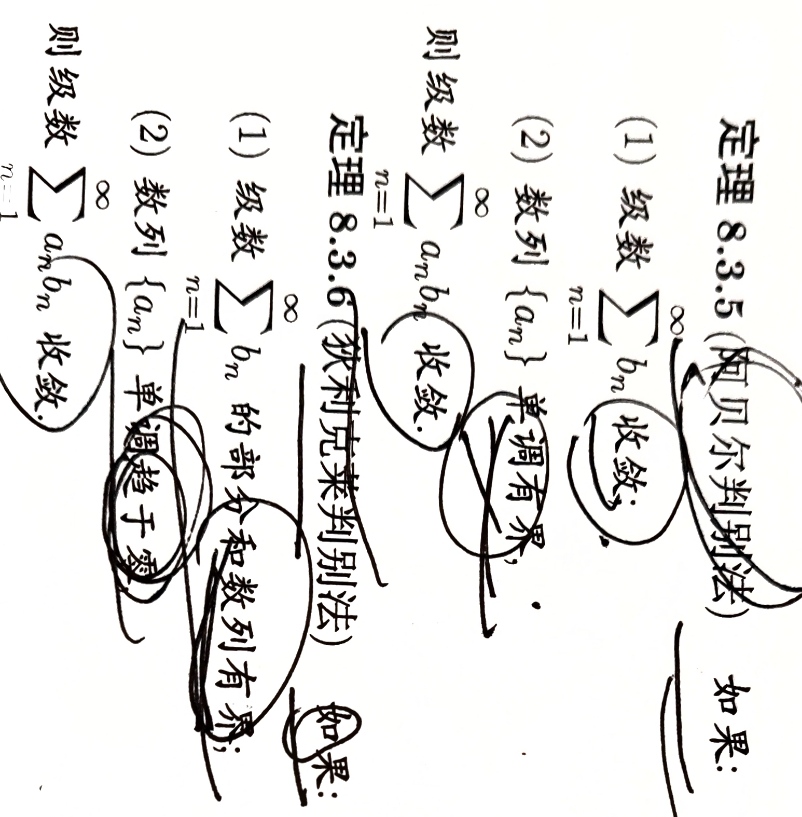 定理 8.3.5 (阿贝尔判别法) 如果:
(1) 级数 $\sum_{n=1}^{\infty} b_n$ 收敛;
(2) 数列 $\{a_n\}$ 单调有界,
则级数 $\sum_{n=1}^{\infty} a_n b_n$ 收敛.
定理 8.3.6 (狄利克莱判别法) 如果:
(1) 级数 $\sum_{n=1}^{\infty} b_n$ 的部分和数列有界;
(2) 数列 $\{a_n\}$ 单调趋于零,
则级数 $\sum_{n=1}^{\infty} a_n b_n$ 收敛.